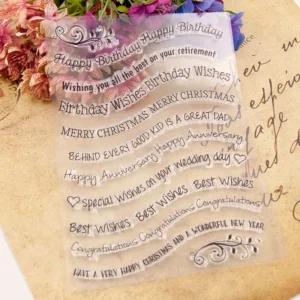 Happy Birthday Happy Birthday
Wishing you all the best on your retirement
Birthday Wishes Birthday Wishes
MERRY CHRISTMAS MERRY CHRISTMAS
BEHIND EVERY GOOD KID IS A GREAT DAD
Happy Anniversary Happy Anniversary
special Wishes on your wedding day
Best Wishes Best Wishes Best Wishes
Congratulations Congratulations Congratulations
HAVE A VERY HAPPY CHRISTMAS AND A WONDERFUL NEW YEAR